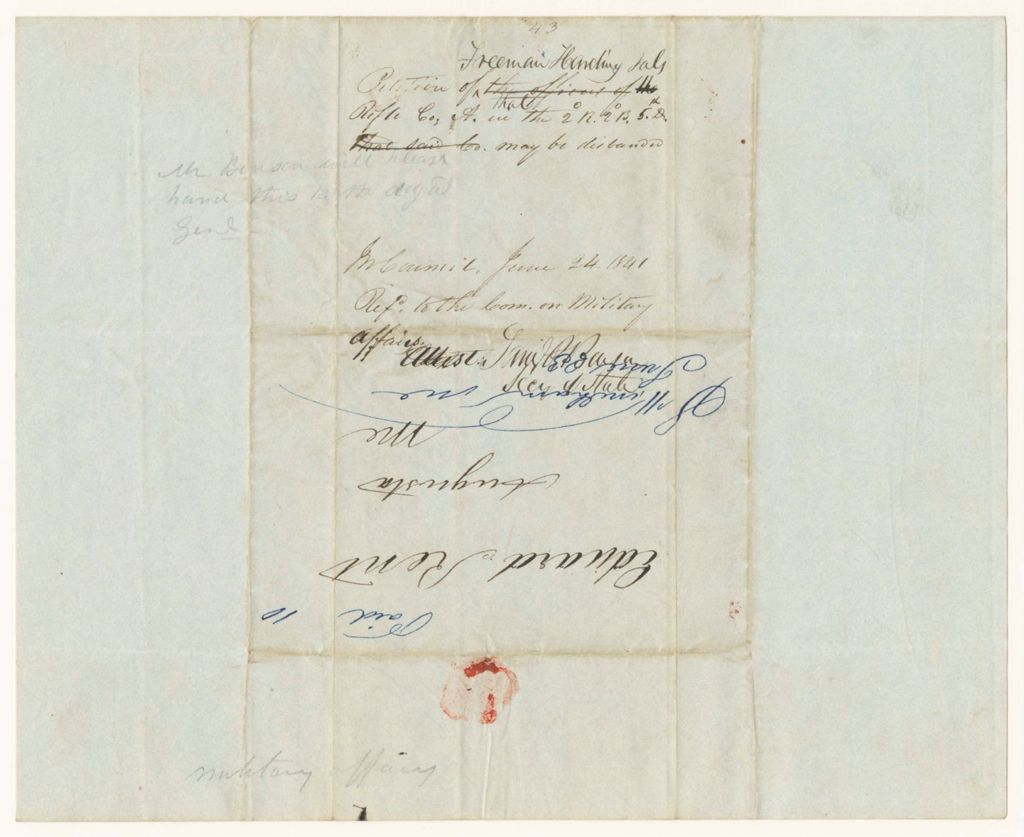 43
Freeman Harding & als
Petition of the officers of the
that
Rifle Co, A. in the 2d R. 2d B. 5th D.
That said Co. may be disbanded
Mr Benson will please
hand this to the adjt
Genl
In Council, June 24. 1841
Refd. to the Com. on Military
affairs.
Attest:
Secy of State
Windham Me
June 23
Edward Kent
Augusta
Me
Paid 10
military affairs